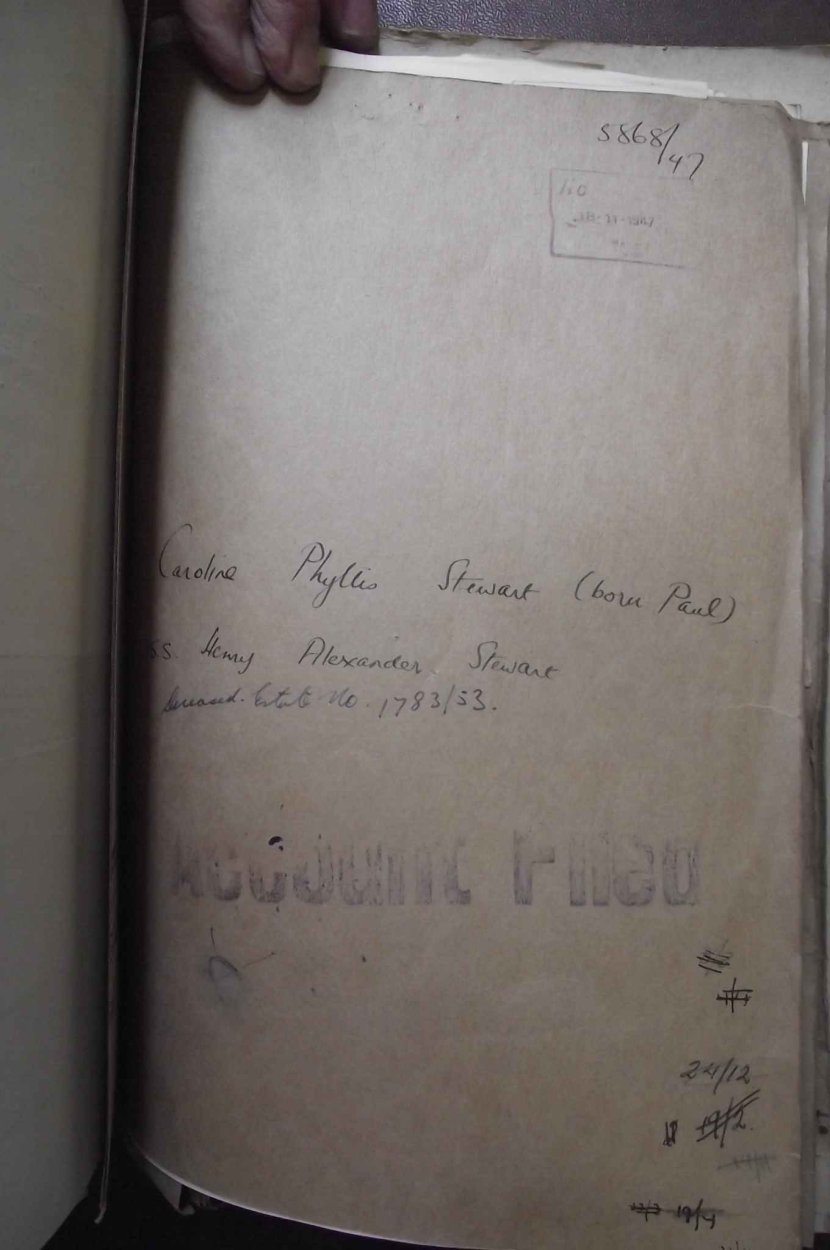 5868/47
Caroline Phyllis Stewart (born Paul)
s.s. Henry Alexander Stewart
Deceased. Estate No. 1783/53.
Account Filed
24/12
19/2.
19/4